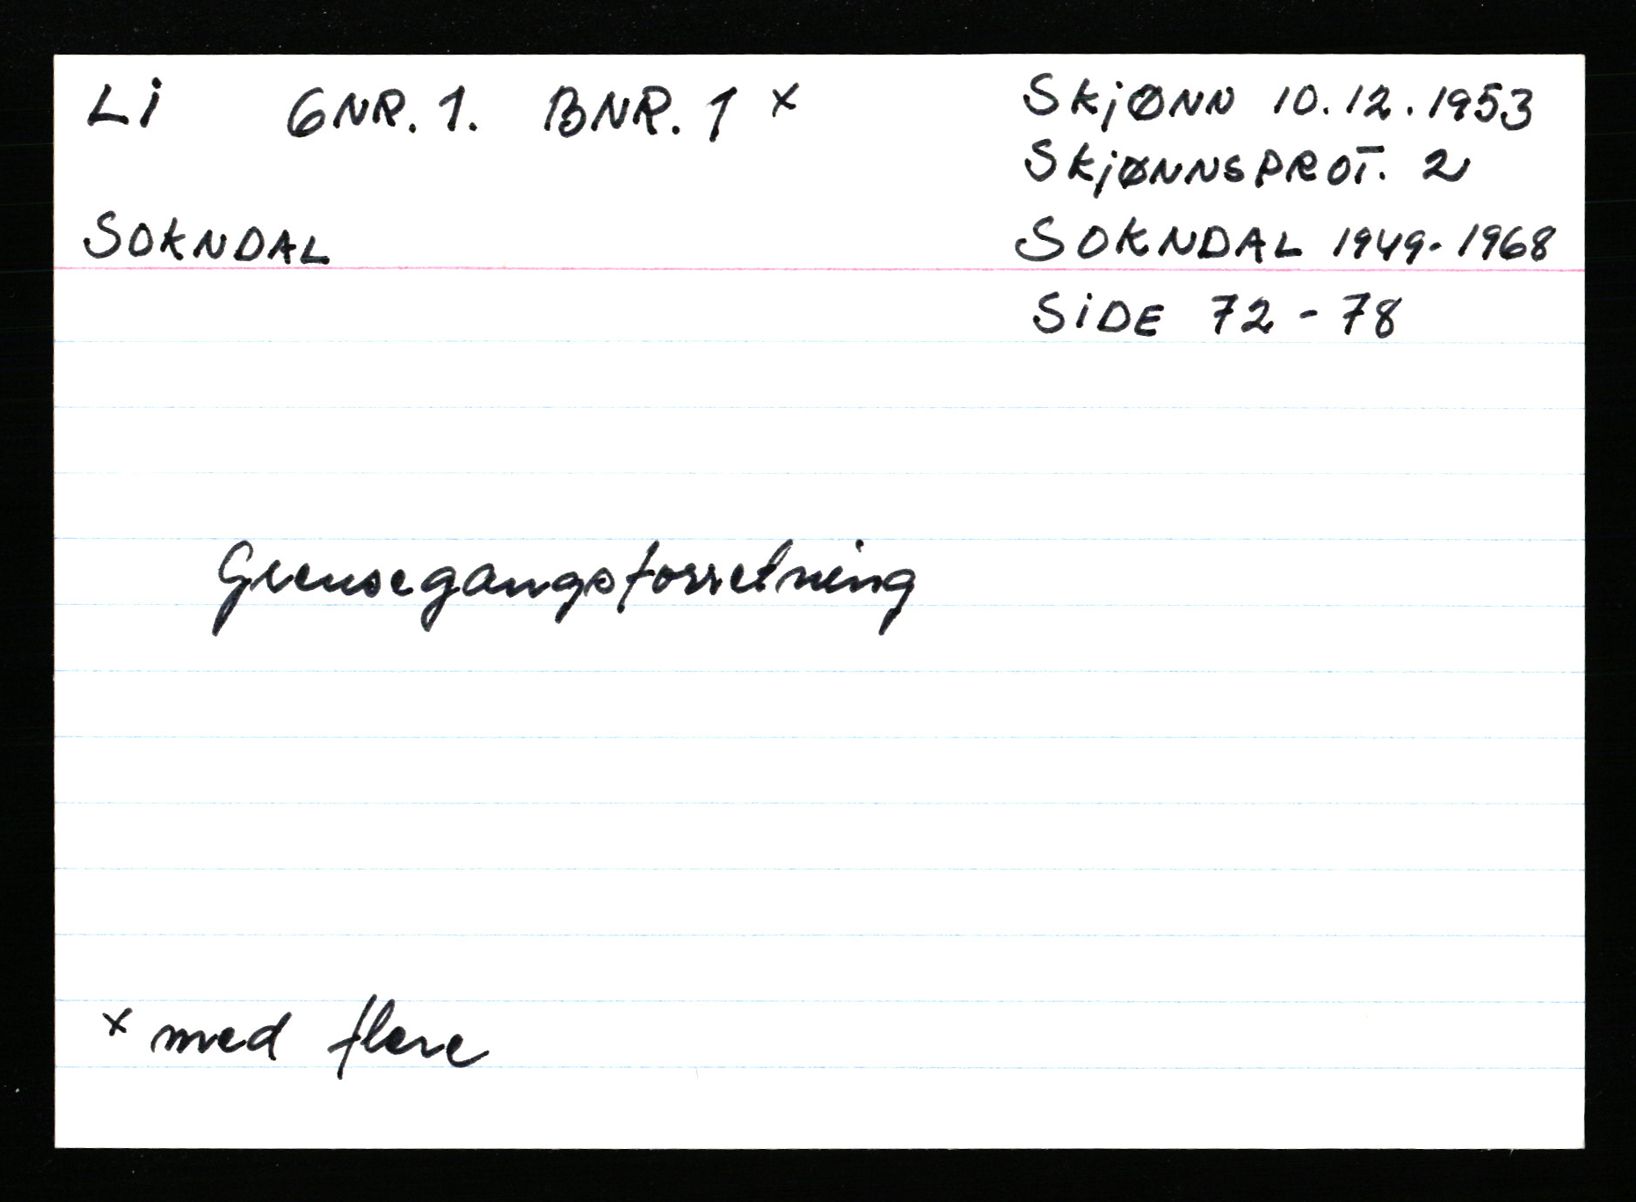 Li GNR. 1. BNR. 1 x
SOKNDAL
SKjØNN 10.12.1953
SKjØNNSPROT. 2
SOKNDAL 1949-1968
SiDE 72 - 78
Grensegangsforretning
x med flere